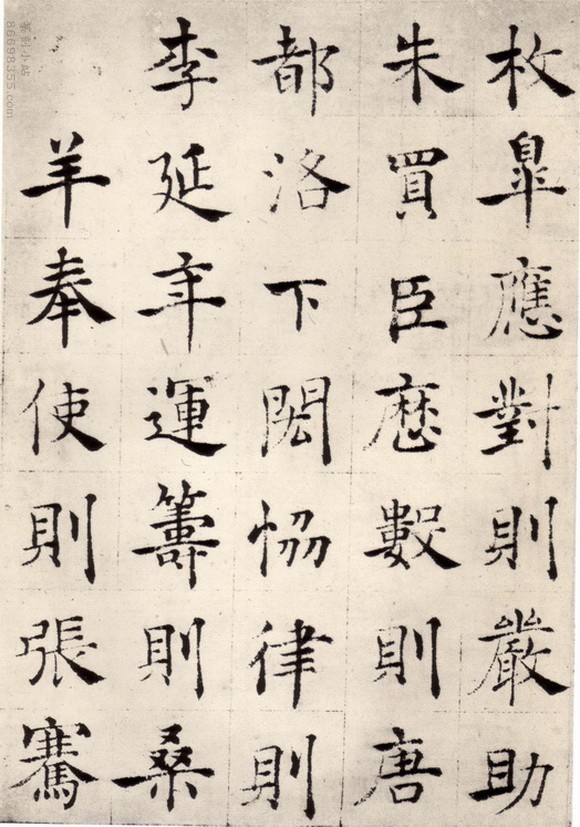 枚皐應對則嚴助
朱買臣歷數則唐
都洛下閎恊律則
李延年運籌則桑
羊奉使則張騫
篆刻小站
86698355.com